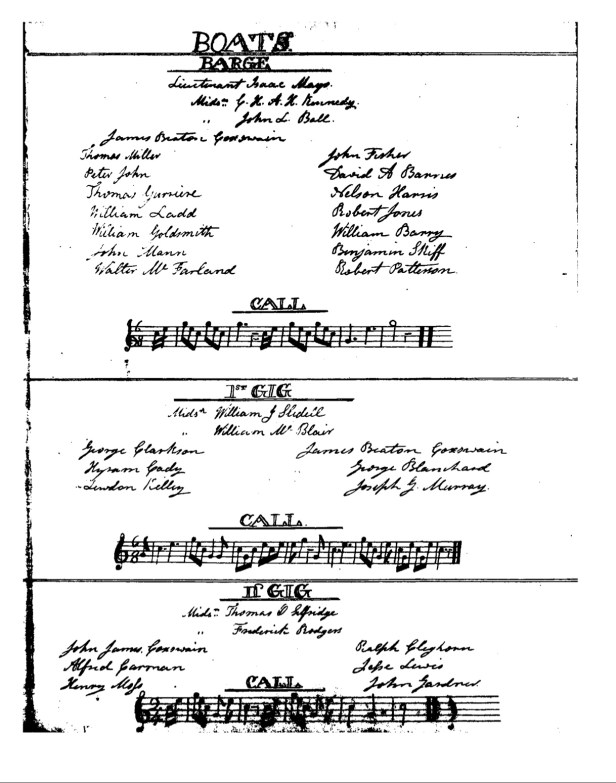 BOATS.
BARGE.
Lieutenant Isaac Mayo.
Midsn G. H. A. H. Kennedy.
" John L. Ball.
James Beaton Coxswain
Thomas Miller John Fisher
Peter John David A Barnes
Thomas Harris
William Ladd Robert Jones
William Goldsmith William Barry
John Mann Benjamin Skiff
Walter Mc Farland Robert Patterson
CALL
6/8
1st GIG
Midsn William J Slidell
" William Mc Blair
George Clarkson James Beaton Coxswain
Hyram Cady George Blanchard
Lewdon Kelley Joseph G. Murray.
CALL.
6/8
II GIG
Midsn Thomas O Selfridge
" Frederick Rodgers
John James, Coxswain Ralph Cleghorn
Alfred Carman Jesse Lewis
Henry Moss John Gardner
CALL
2/4